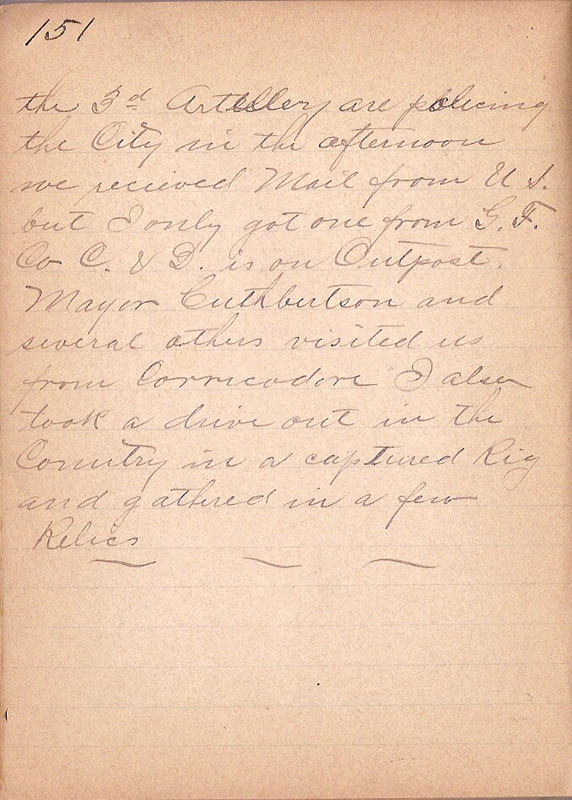 151
the 3d Artillery are policing
the City in the afternoon
we recieved Mail from U S.
but I only got one from G. F.
Co C. & D. is on Outpost.
Mayor Cuthbertson and
several others visited us
from Corricodore I also
took a drive out in the
Country in a captured Rig
and gathered in a few
Relics